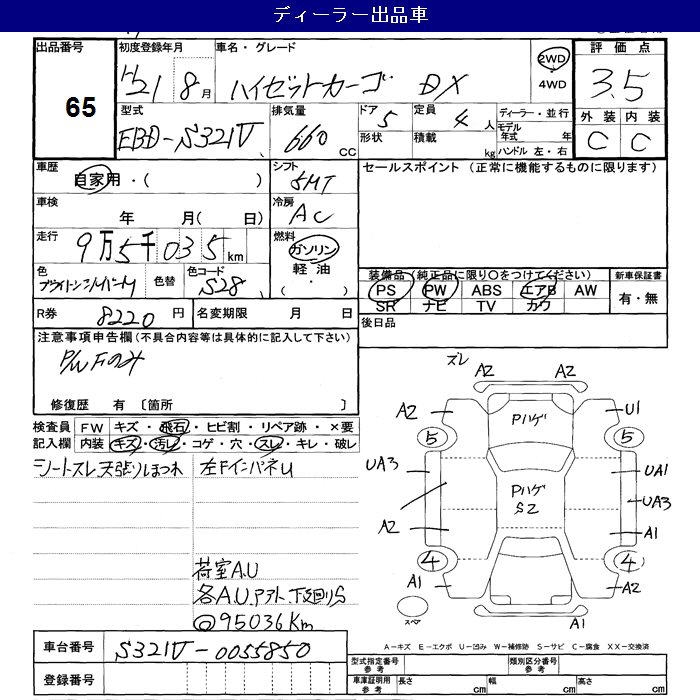 ディーラー出品車
出品番号 初度登録年月 車名・グレード 評価点
65
H21 8月 ハイゼットカーゴ DX 2WD・4WD 3.5
型式 排気量 ドア 定員 ディーラー・並行 外装 内装
EBD-S321V 660CC 5 4人 モデル年式 年 C C
形状 積載 kg ハンドル 左・右
車歴 シフト セールスポイント (正常に機能するものに限ります)
自家用・( ) 5MT
車検 冷房
年 月( 日) AC
走行 燃料
9万5千035km ガソリン
軽油
(・ )
色 色替 色コード 装備品(純正品に限り○をつけてください) 新車保証書
S28 PS PW ABS エアB AW 有・無
SR ナビ TV カワ
R券 8220円 名変期限 月 日 後日品
注意事項申告欄(不具合内容等は具体的に記入して下さい)
P/W Fのみ
修復歴 有 〔箇所 〕
検査員 FW キズ・飛石・ヒビ割・リペア跡・×要
記入欄 内装 キズ・汚レ・コゲ・穴・スレ・キレ・破レ
シートスレ 天張りほつれ 左FインパネU
荷室A.U
各A.U.アフト.下廻りS
@95036Km
車台番号 S321V-0055850
登録番号
ズレ
A2 A2
A2 Pハゲ U1
5 5
UA3 UA1
Pハゲ
S2 UA3
A2 A1
4 4
A1 A2
スペア A1
A－キズ E－エクボ U－凹み W－補修跡 S－サビ C－腐食 XX－交換済
型式指定番号 参考 類別区分番号 参考
車庫証明用 参考 長さ cm 幅 cm 高さ cm